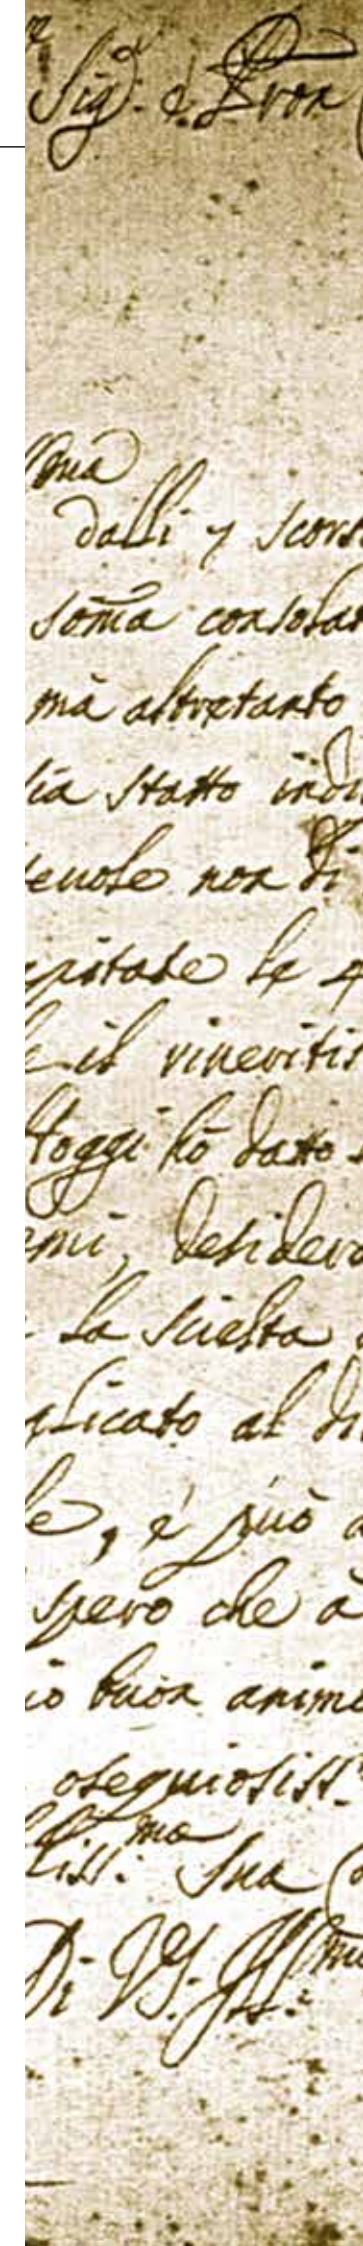 Sig.r è Pron
ma
dalli 7 scors
soma consolat
mà altretanto
ia statto ind
euole non di
pitate le
è il riueritis
hoggi hò datto
mi, desidero
la scielta
plicato al
e, è può a
spero che à
io buon animo
osequiosiss.
liss.ma Sua
Di V.S. Ill.ma